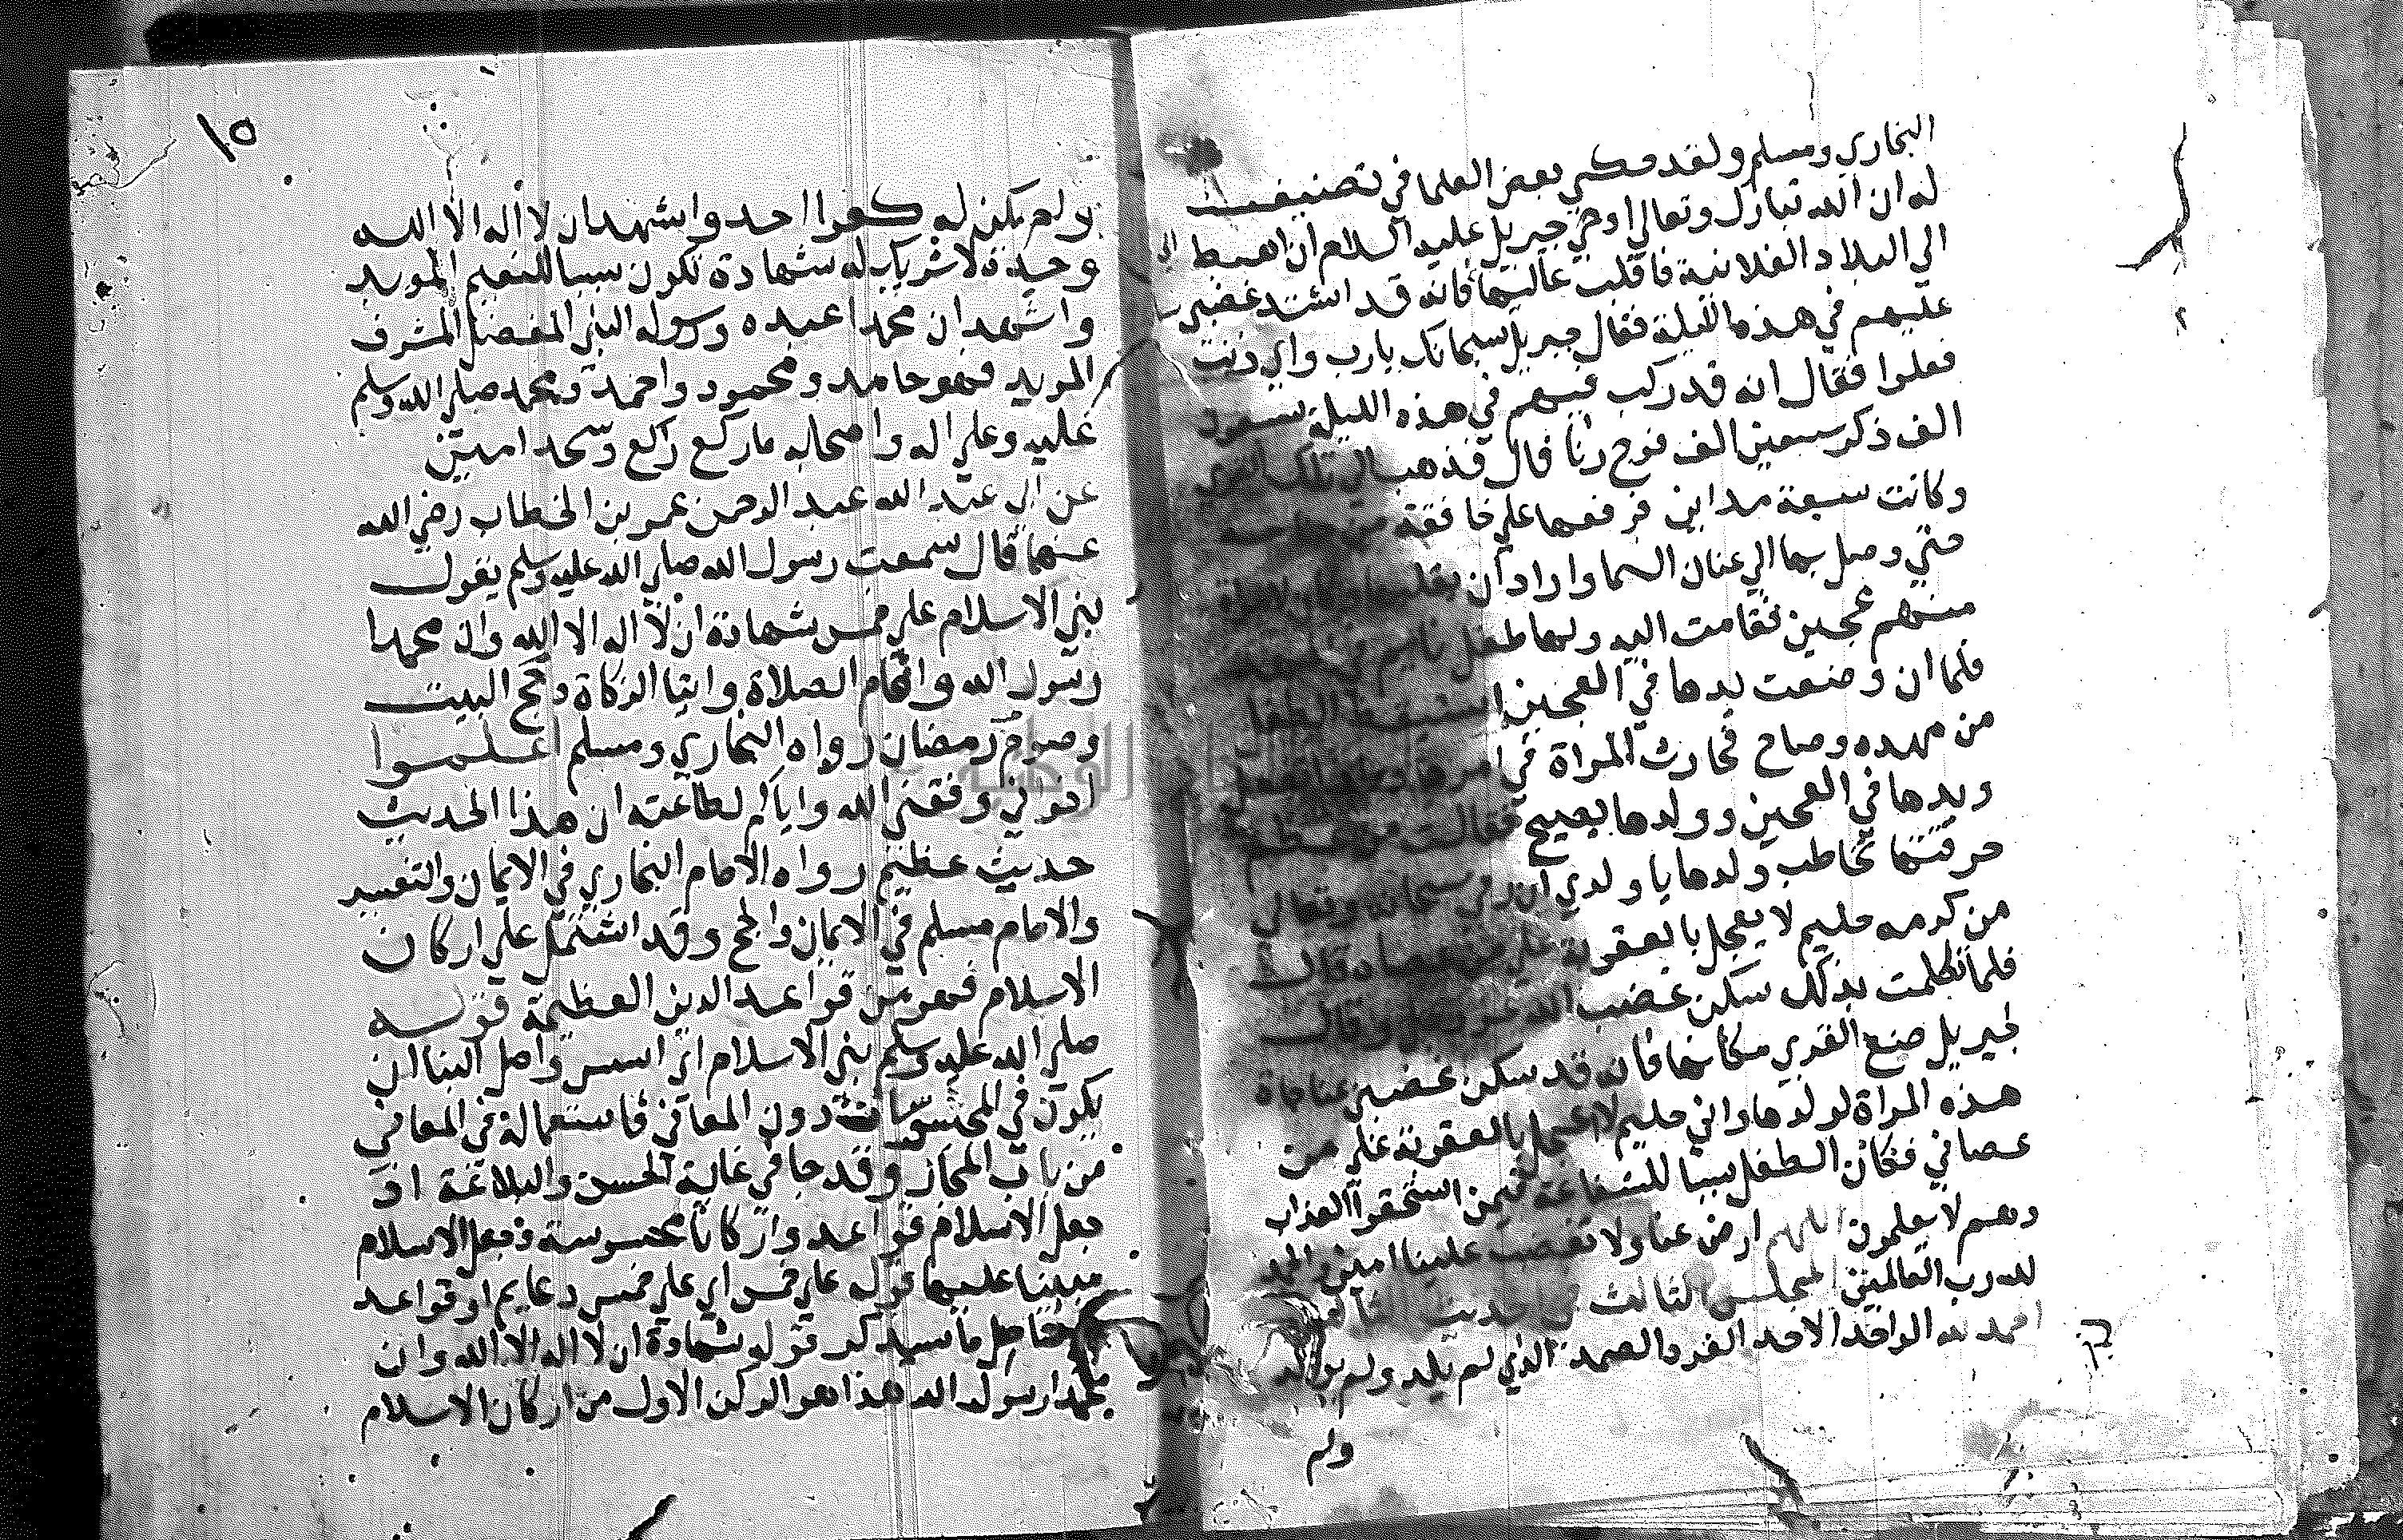 البخاري ومسلم ولقد حكي بعض العلما في تصنيف
له ان الله تبارك وتعالي اوحي جبريل عليه السلام ان اهبط الي
الي البلاد الفلانية فاقلب عاليها فانه قد اشتد غضبي
عليهم في هذه الليلة فقال جبريل سبحانك يارب واي ذنب
فعلوا فقال انه قد ركب فيهم في هذه الليلة سبعون
الف ذكر سبعين الف فرج زنا قال فذهب الي تلك القري
وكانت سبعة مداين فرفعها علي خافقة من
حتي وصل بها الي عنان السما واراد ان يقلبها
منهم عجين فقامت اليه ولها طفل نايم في
فلما ان وضعت يدها في العجين استيقظ الطفل
من مهده وصاح فحارت المراة في امرها
ويدها في العجين وولدها يصيح فقالت
حرقتها تخاطب ولدها يا ولدي ان ربي سبحانه وتعالي
من كرمه حليم لا يعجل بالعقوبة علي من عصاه قالت
فلما تكلمت بذلك سكن غضب الله عز وجل وقال
لجبريل ضع القري مكانها فانه قد سكن غضبي مناجاة
هذه المراة لولدها واني حليم لا اعجل بالعقوبة علي من
عصاني فكان الطفل سببا للشفاعة فيمن استحقوا العذاب
وهم لا يعلمون اللهم ارض عنا ولا تغضب علينا امين والحمد
لله رب العالمين المجلس الثالث في الحديث الثالث
الحمد لله الواحد الاحد الفرد الصمد الذي لم يلد ولم يولد
ولم
١٥
ولم يكن له كفوا احد واشهد ان لا اله الا الله
وحده لا شريك له شهادة تكون سببا للنعيم الموبد
واشهد ان محمدا عبده ورسوله النبي المفضل المشرف
المويد فهو حامد ومحمود واحمد ومحمد صلي الله وسلم
عليه وعلي اله واصحابه ماركع راكع وسجد امين
عن ابي عبد الله عبد الرحمن عمر بن الخطاب رضي الله
عنهما قال سمعت رسول الله صلي الله عليه وسلم يقول
بني الاسلام علي خمس شهادة ان لا اله الا الله وان محمدا
رسول الله واقام الصلاة وايتا الزكاة وحج البيت
وصوم رمضان رواه البخاري ومسلم اعلموا
اخواني وفقني الله واياكم لطاعته ان هذا الحديث
حديث عظيم رواه الامام البخاري في الايمان والتفسير
والامام مسلم في الايمان والحج وقد اشتمل علي اركان
الاسلام فهو من قواعد الدين العظيمة قوله
صلي الله عليه وسلم بني الاسلام اي اسس واصل البنا ان
يكون في المحسوسات دون المعاني فاستعماله في المعاني
من باب المجاز وقد جا في غاية الحسن والبلاغة اذ
جعل الاسلام قواعد واركانا محسوسة وجعل الاسلام
مبينا عليها قوله علي خمس اي علي خمس دعايم او قواعد
حاصل ما سيذكر قوله شهادة ان لا اله الا الله وان
محمدا رسول الله هذا هو الركن الاول من اركان الاسلام